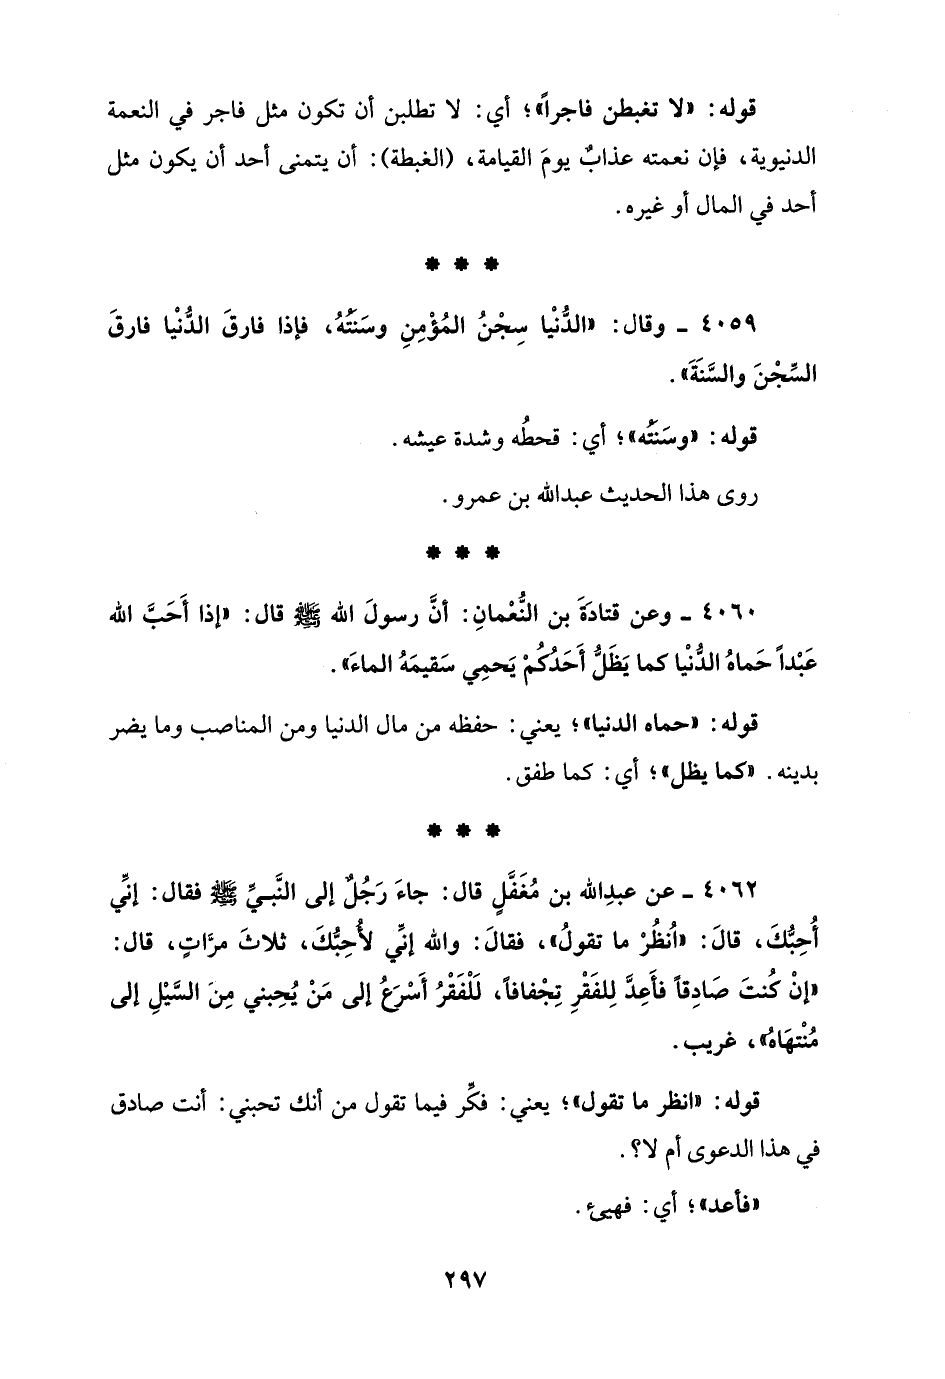 قوله: «لا تغبطن فاجراً»؛ أي: لا تطلبن أن تكون مثل فاجر في النعمة
الدنيوية، فإن نعمته عذابٌ يومَ القيامة، (الغبطة): أن يتمنى أحد أن يكون مثل
أحد في المال أو غيره.
* * *
٤٠٥٩ ـ وقال: «الدُّنْيا سِجْنُ المُؤْمِنِ وسَنَتُهُ، فإذا فارقَ الدُّنْيا فارقَ
السِّجْنَ والسَّنَةَ».
قوله: «وسَنَتُه»؛ أي: قحطُه وشدة عيشه.
روى هذا الحديث عبدالله بن عمرو.
* * *
٤٠٦٠ ـ وعن قتادَةَ بن النُّعْمانِ: أنَّ رسولَ الله ﷺ قال: «إذا أَحَبَّ الله
عَبْداً حَماهُ الدُّنْيا كما يَظَلُّ أَحَدُكُمْ يَحمِي سَقيمَهُ الماءَ».
قوله: «حماه الدنيا»؛ يعني: حفظه من مال الدنيا ومن المناصب وما يضر
بدينه. «كما يظل»؛ أي: كما طفق.
* * *
٤٠٦٢ ـ عن عبدِالله بن مُغَفَّلٍ قال: جاءَ رَجُلٌ إلى النَّبيِّ ﷺ فقال: إنِّي
أُحِبُّكَ، قالَ: «اُنظُرْ ما تقولُ»، فقالَ: والله إنِّي لأُحِبُّكَ، ثلاثَ مرَّاتٍ، قال:
«إنْ كُنتَ صَادِقاً فأَعِدَّ لِلفَقْرِ تِجْفافاً، لَلْفَقْرُ أَسْرَعُ إلى مَنْ يُحِبني مِنَ السَّيْلِ إلى
مُنْتهَاهُ»، غريب.
قوله: «انظر ما تقول»؛ يعني: فكِّر فيما تقول من أنك تحبني: أنت صادق
في هذا الدعوى أم لا؟.
«فأعد»؛ أي: فهيئ.
٢٩٧